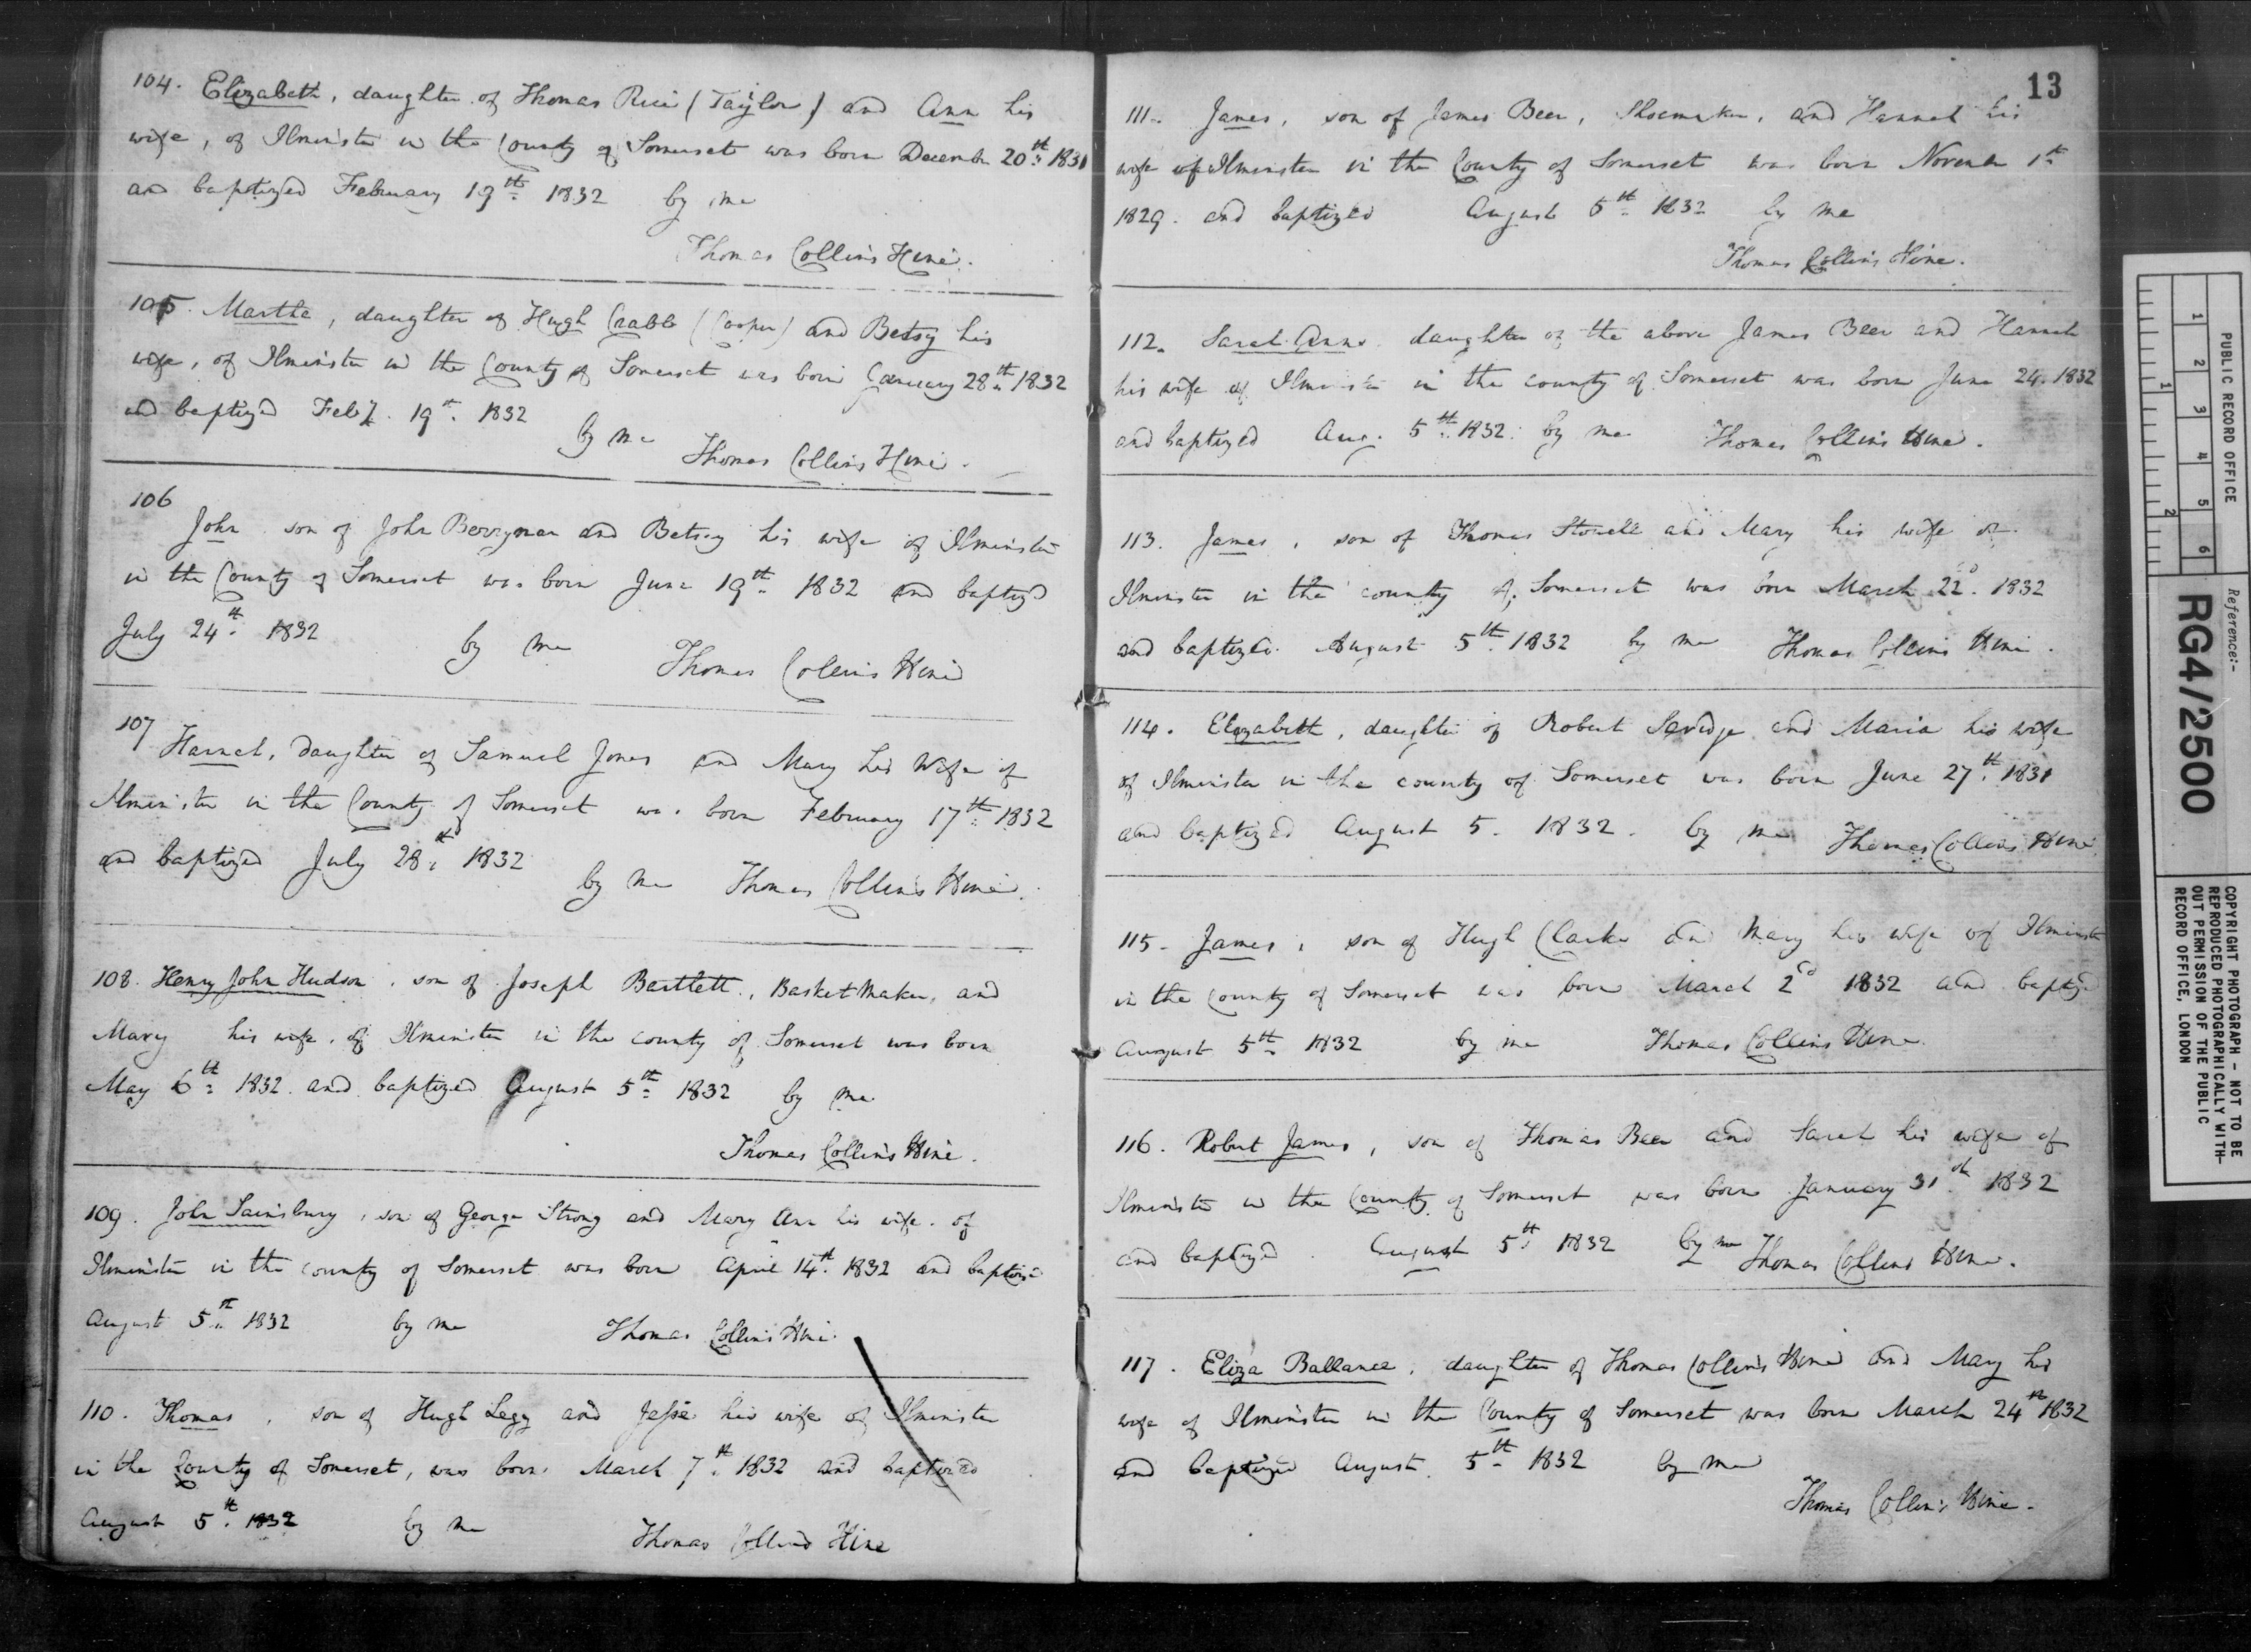 104. Elizabeth, daughter of Thomas Rice (Taylor) and Ann his
wife, of Ilminster in the County of Somerset was born December 20th 1831
and baptized February 19th 1832 by me
Thomas Collins Hine.
105. Martha, daughter of Hugh Crabb (Cooper) and Betsy his
wife, of Ilminster in the County of Somerset was born January 28th 1832
and baptized Feby. 19th 1832
by me Thomas Collins Hine.
106
John son of John Berryman and Betsey his wife of Ilminster
in the County of Somerset was born June 19th 1832 and baptized
July 24th 1832 by me Thomas Collins Hine
107
Hannah, Daughter of Samuel Jones and Mary his Wife of
Ilminster in the County of Somerset was born February 17th 1832
and baptized July 28th 1832
by me Thomas Collins Hine.
108. Henry John Hudson, son of Joseph Bartlett, Basket Maker, and
Mary his wife, of Ilminster in the county of Somerset was born
May 6th 1832 and baptized August 5th 1832 by me
Thomas Collins Hine.
109. John Sainsbury, son of George Strong and Mary Ann his wife of
Ilminster in the county of Somerset was born April 14th 1832 and baptized
August 5th 1832 by me Thomas Collins Hine.
110. Thomas, son of Hugh Legg and Jesse his wife of Ilminster
in the County of Somerset, was born March 7th 1832 and baptized
August 5th 1832 by me Thomas Collins Hine
13
111. James, son of James Beer, Shoemaker, and Hannah his
wife of Ilminster in the County of Somerset was born November 1st
1829. and baptized August 5th 1832 by me
Thomas Collins Hine.
112. Sarah Anne daughter of the above James Beer and Hannah
his wife of Ilminster in the county of Somerset was born June 24. 1832
and baptized Aug. 5th 1832. by me Thomas Collins Hine.
113. James, son of Thomas Stowell and Mary his wife of
Ilminster in the county of Somerset was born March 22d. 1832
and baptized August 5th 1832 by me Thomas Collins Hine.
114. Elizabeth, daughter of Robert Savidge and Maria his wife
of Ilminster in the county of Somerset was born June 27th 1831
and baptized August 5. 1832. by me Thomas Collins Hine
115. James, son of Hugh Clarke and Mary his wife of Ilminster
in the County of Somerset was born March 2cd 1832 and baptized
August 5th 1832 by me Thomas Collins Hine.
116. Robert James, son of Thomas Beer and Sarah his wife of
Ilminster in the County of Somerset was born January 31th 1832
and baptized August 5th 1832 by me Thomas Collins Hine.
117. Eliza Ballance, daughter of Thomas Collins Hine and Mary his
wife of Ilminster in the County of Somerset was born March 24th 1832
and baptized August 5th 1832 by me
Thomas Collins Hine.
PUBLIC RECORD OFFICE
1 2 3 4 5 6
1 2
Reference:-
RG4/2500
COPYRIGHT PHOTOGRAPH - NOT TO BE
REPRODUCED PHOTOGRAPHICALLY WITH-
OUT PERMISSION OF THE PUBLIC
RECORD OFFICE, LONDON